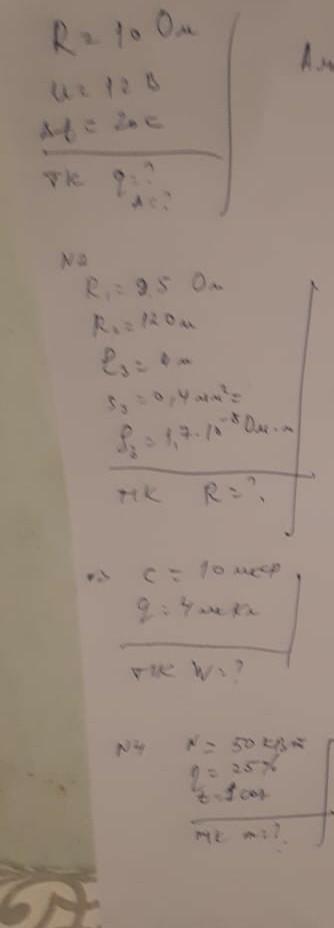 R = 10 Ом
U = 12 В
Δt = 20 с
тк q = ?
A = ?
N2
R₁ = 25 Ом
R₂ = 12 Ом
S₃ = 0,4 мм² =
ρ₃ = 1,7·10⁻⁸ Ом·м
тк R = ?
C = 10 мкФ
q = 4 мкКл
тк W = ?
N4 N = 50 кВт
η = 25%
t = 1 сот
тк m = ?